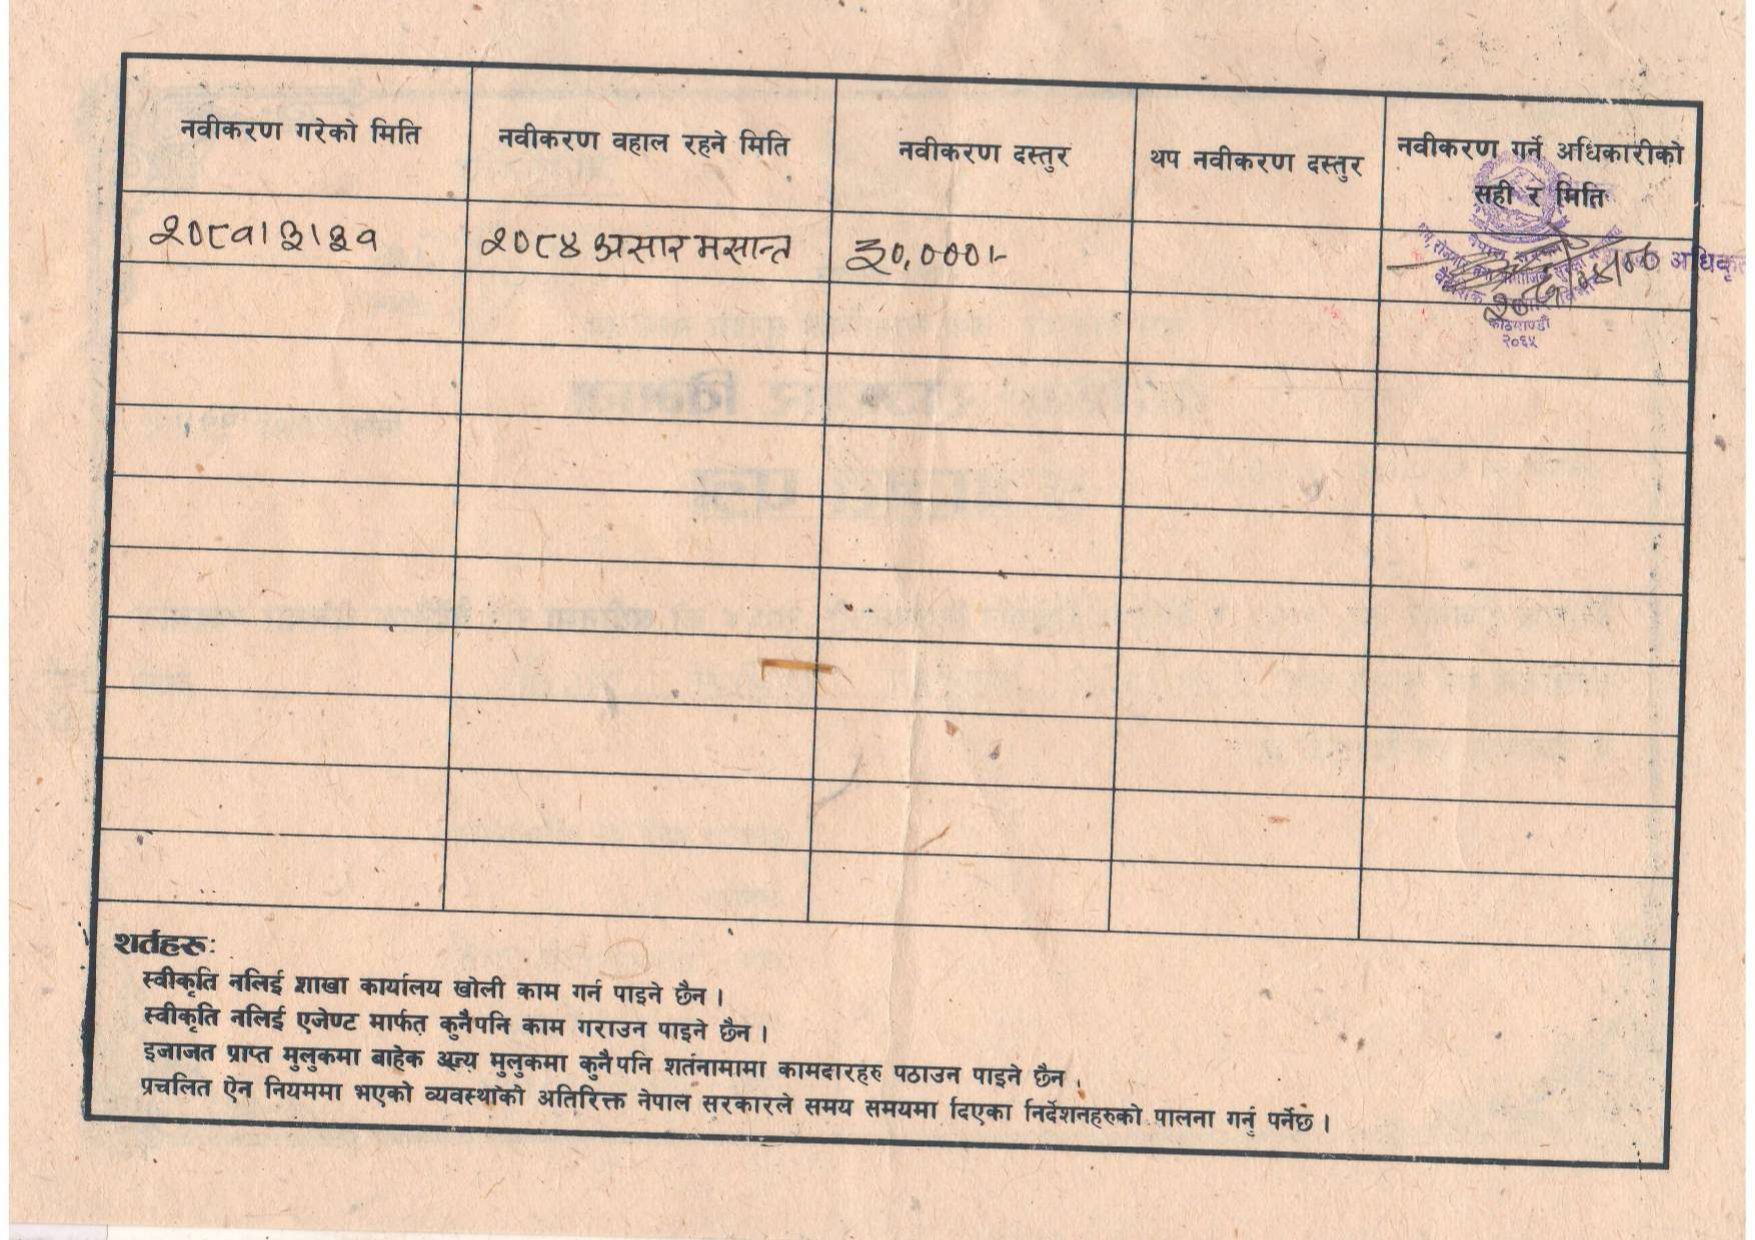 नवीकरण गरेको मिति
नवीकरण वहाल रहने मिति
नवीकरण दस्तुर
थप नवीकरण दस्तुर
नवीकरण गर्ने अधिकारीको
सही र मिति
२०८१।३।३१
२०८४ असार मसान्त
३०,०००।-
अधिकृत
काठमाण्डौ
२०६५
शर्तहरू:
स्वीकृति नलिई शाखा कार्यालय खोली काम गर्न पाइने छैन ।
स्वीकृति नलिई एजेण्ट मार्फत कुनैपनि काम गराउन पाइने छैन ।
इजाजत प्राप्त मुलुकमा बाहेक अन्य मुलुकमा कुनैपनि शर्तनामामा कामदारहरु पठाउन पाइने छैन ।
प्रचलित ऐन नियममा भएको व्यवस्थाको अतिरिक्त नेपाल सरकारले समय समयमा दिएका निर्देशनहरुको पालना गर्नु पर्नेछ ।